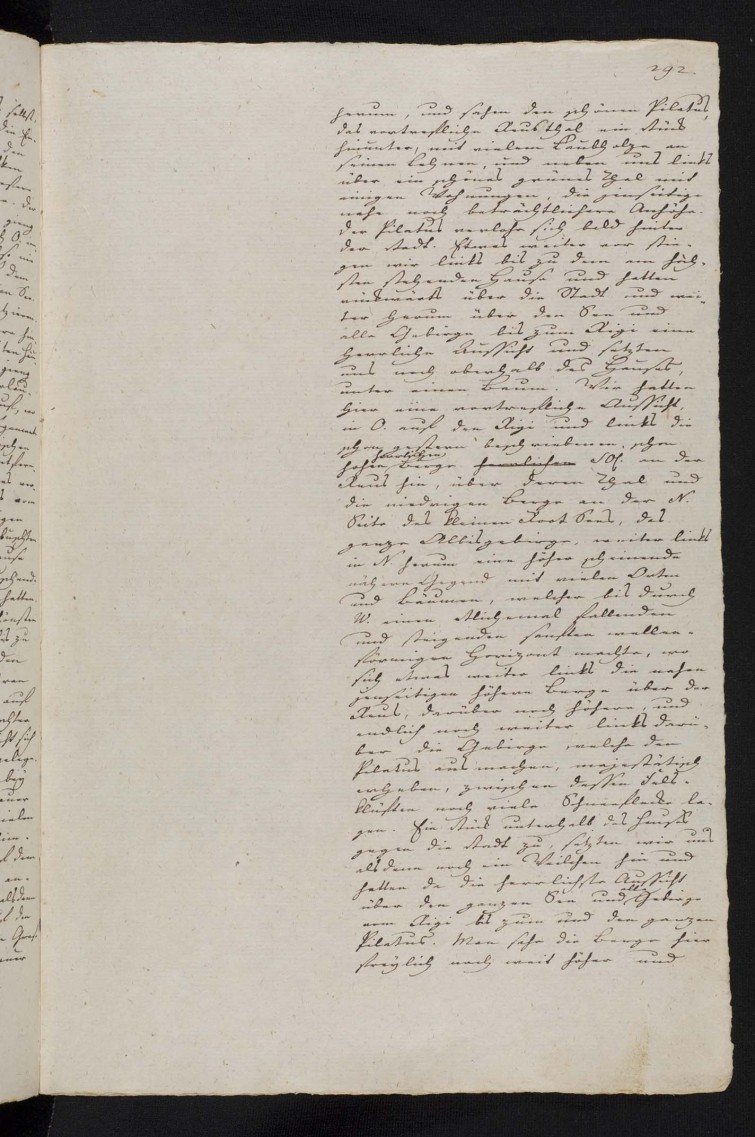 292.
herum, und sahen den schönen Pilatus,
das vortrefliche Reusthal ein Stük
hinunter, mit vielem Laubholze an
seinen Lehnen, und neben uns links
über ein schönes grünes Thal mit
einigen Wohnungen, die jenseitige
nahe noch beträchtlichere Anhöhe.
Der Pilatus verlohr sich bald hinter
der Stadt. Etwas weiter vor stie-
gen wir links bis zu dem am höch-
sten stehenden Hause und hatten
rückwärts über die Stadt und wei-
ter herum über den See und
alle Gebirge bis zum Rigi eine
herrliche Aussicht und setzten
uns noch oberhalb des Hauses,
unter einen Baum. Wir hatten
hier eine vortrefliche Aussicht.
in O. auf den Rigi und links die
schon gestern beschriebenen, schon
herrlichen
hohen Berge herrlichen an der
Reus hin, über deren Thal und
die niedrigen Berge an der N.
Seite des kleinen Sees, das
ganze Albisgebirge, weiter links
in N herum eine höher scheinende
nähere Gegend mit vielen Orten
und Bäumen, welcher bis durch
W. einen etlichemal fallenden
und steigenden sanften wellen-
förmigen Horizont machte, wo
sich etwas weiter links die nahen
jenseitigen höhern Berge über der
Reus, darüber noch höhere, und
endlich noch weiter links darü-
ber die Gebirge welche den
Pilatus ausmachen, majestätisch
erheben, zwischen dessen Fels-
klüften noch viele Schneeflecke la-
gen. Ein Stük unterhalb des Hauses
gegen die Stadt zu, setzten wir uns
alsdenn noch ein Weilchen hin und
hatten da die herrlichste Aussicht
über den ganzen See und alle Gebirge
vom Rigi bis zum und den ganzen
Pilatus. Man sahe die Berge hier
freylich noch weit höher und